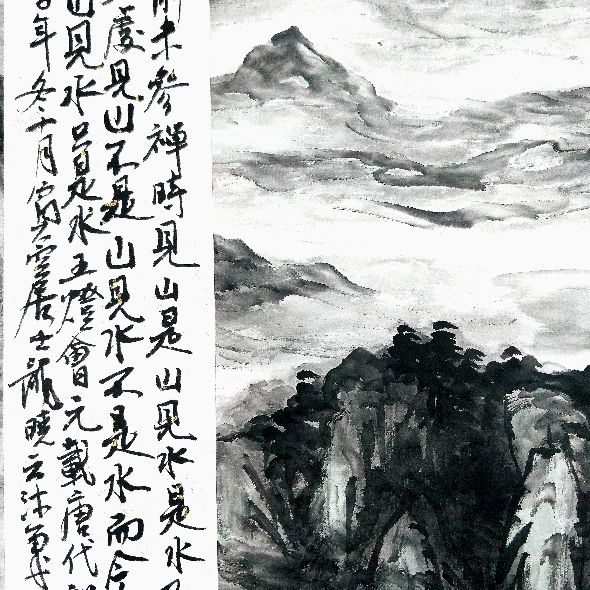 前未參禪時見山是山見水是水
處見山不是山見水不是水而今
山見水只是水五燈會元載唐代
年冬十月居士龍曉云沐筆